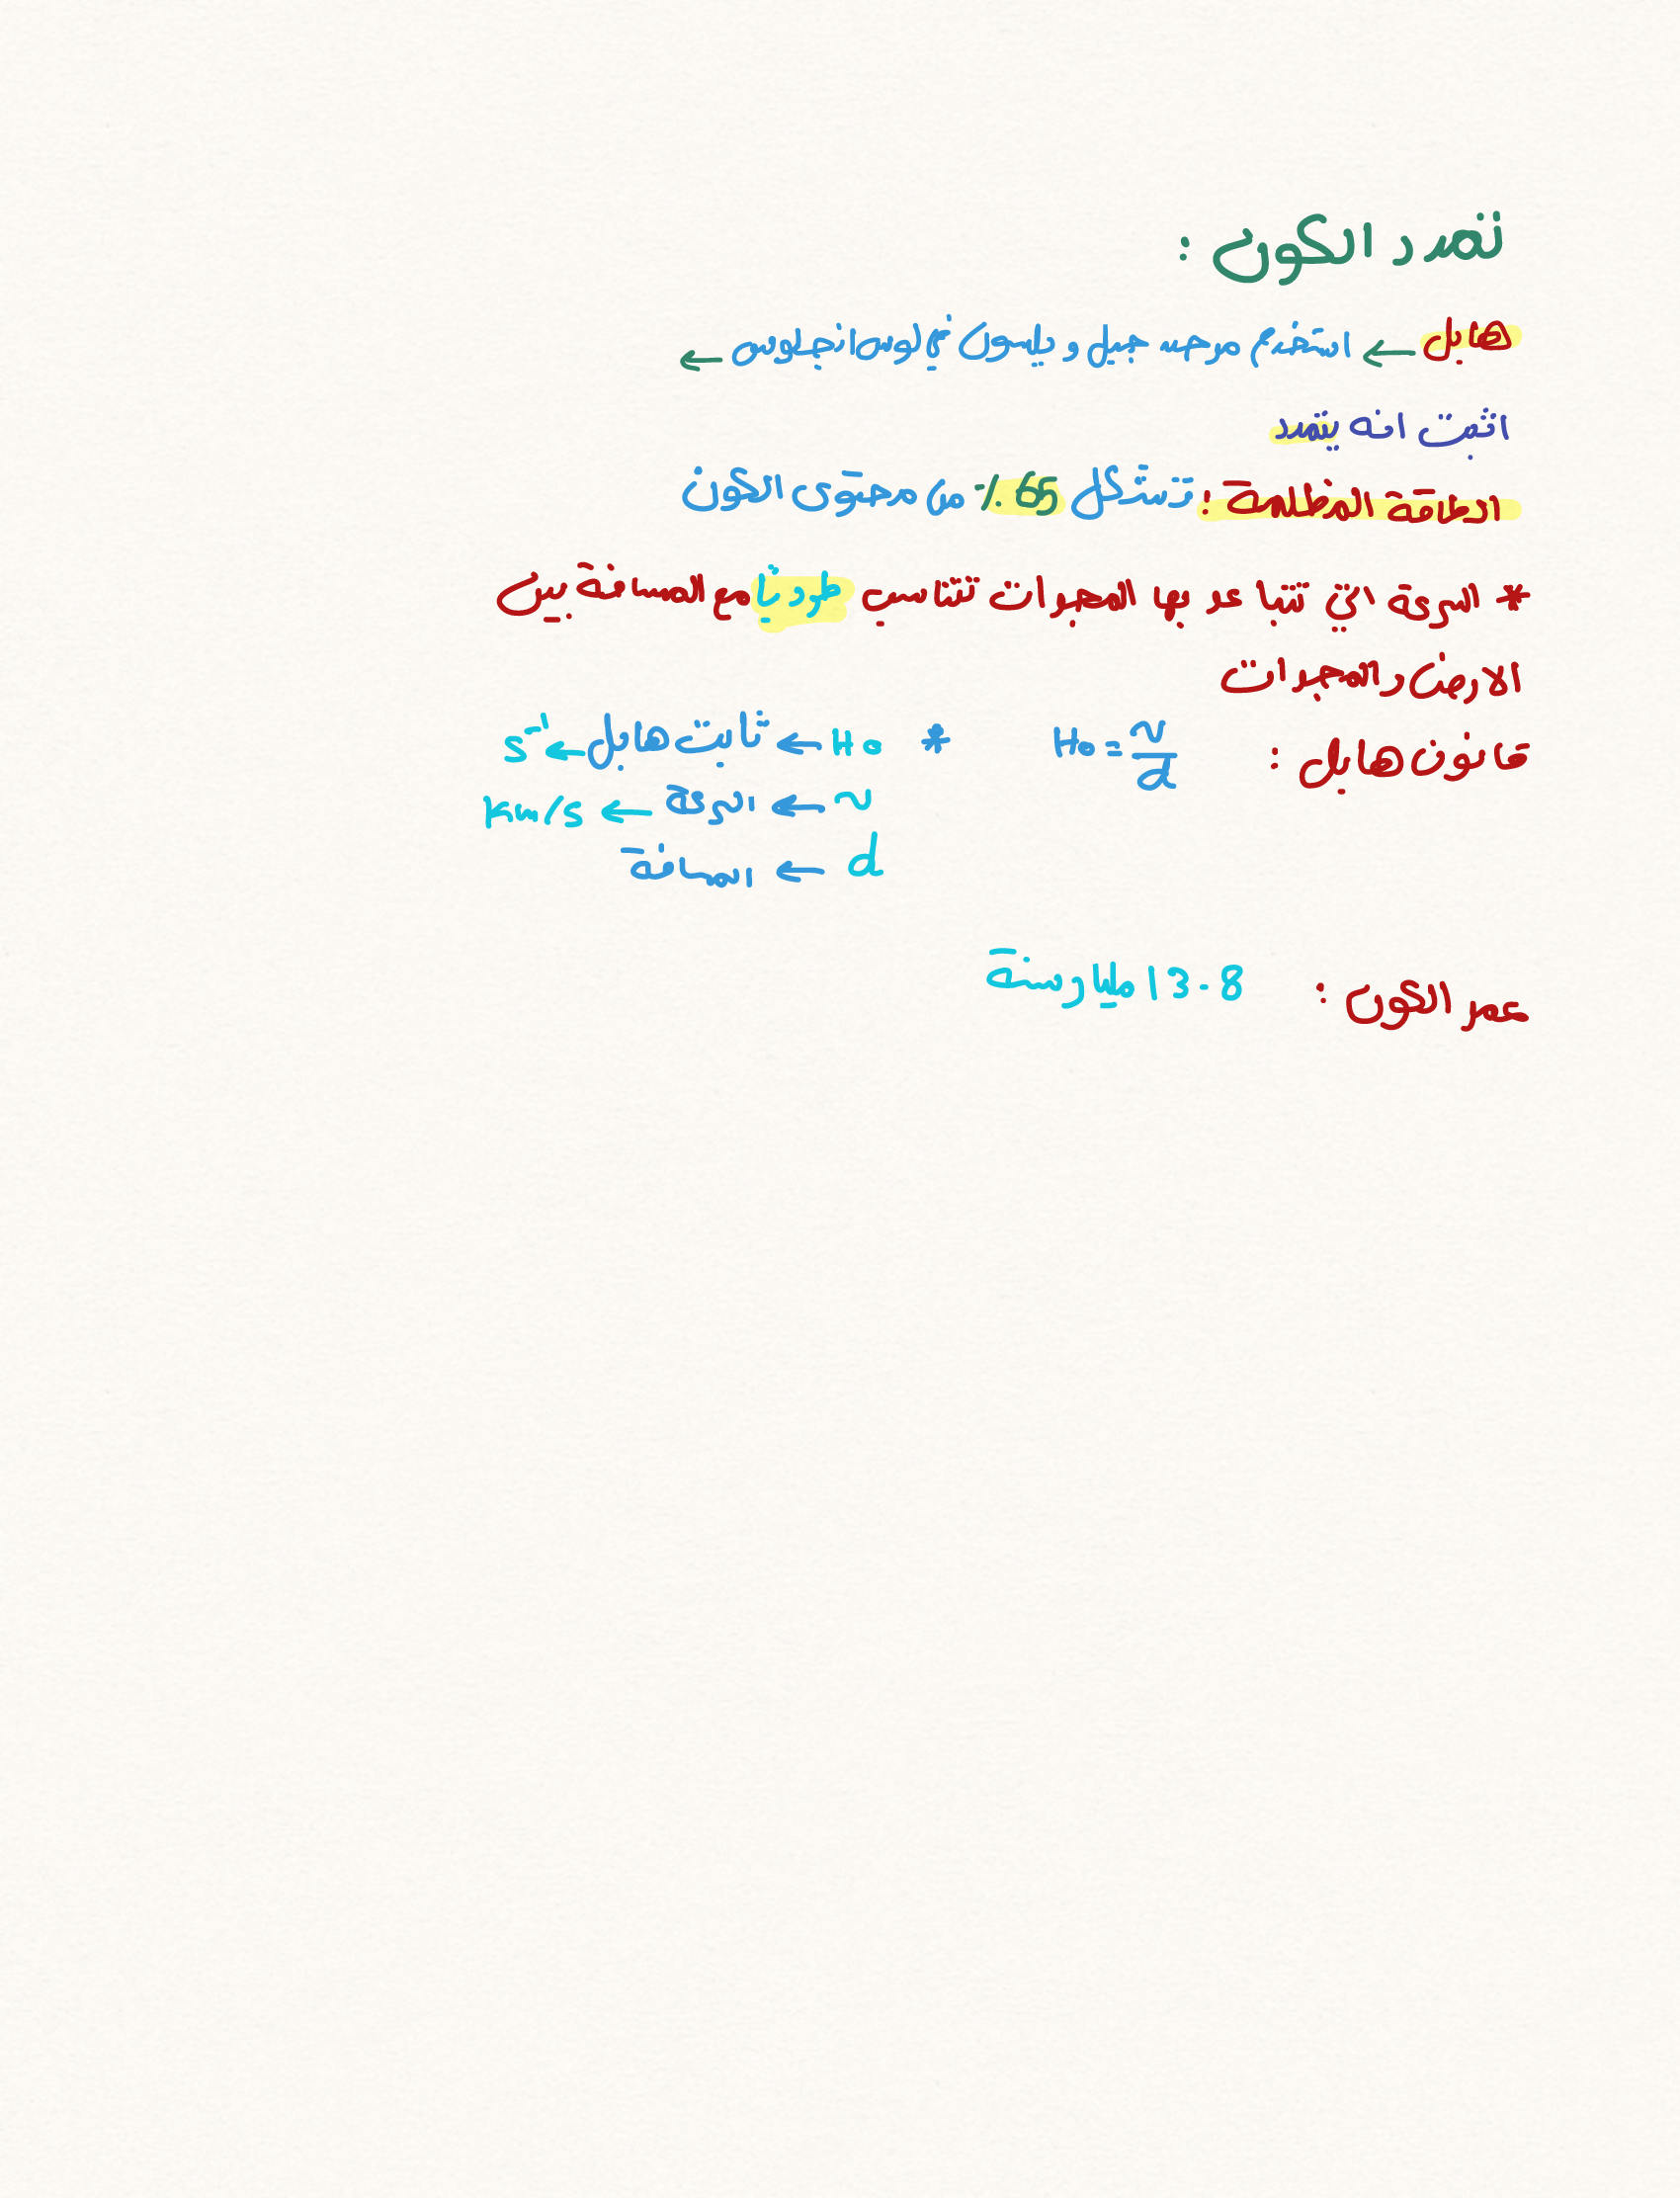 تمدد الكون :
هابل ← استخدم مرصد جبل ويلسون في لوس انجلوس ←
اثبت انه يتمدد
الطاقة المظلمة : تشكل 65٪ من محتوى الكون
* السرعة التي تتباعد بها المجرات تتناسب طرديًا مع المسافة بين
الارض والمجرات
قانون هابل : H₀ = v/d * H₀ ← ثابت هابل ← s⁻¹
v ← السرعة ← km/s
d ← المسافة
عمر الكون : 13.8 مليار سنة